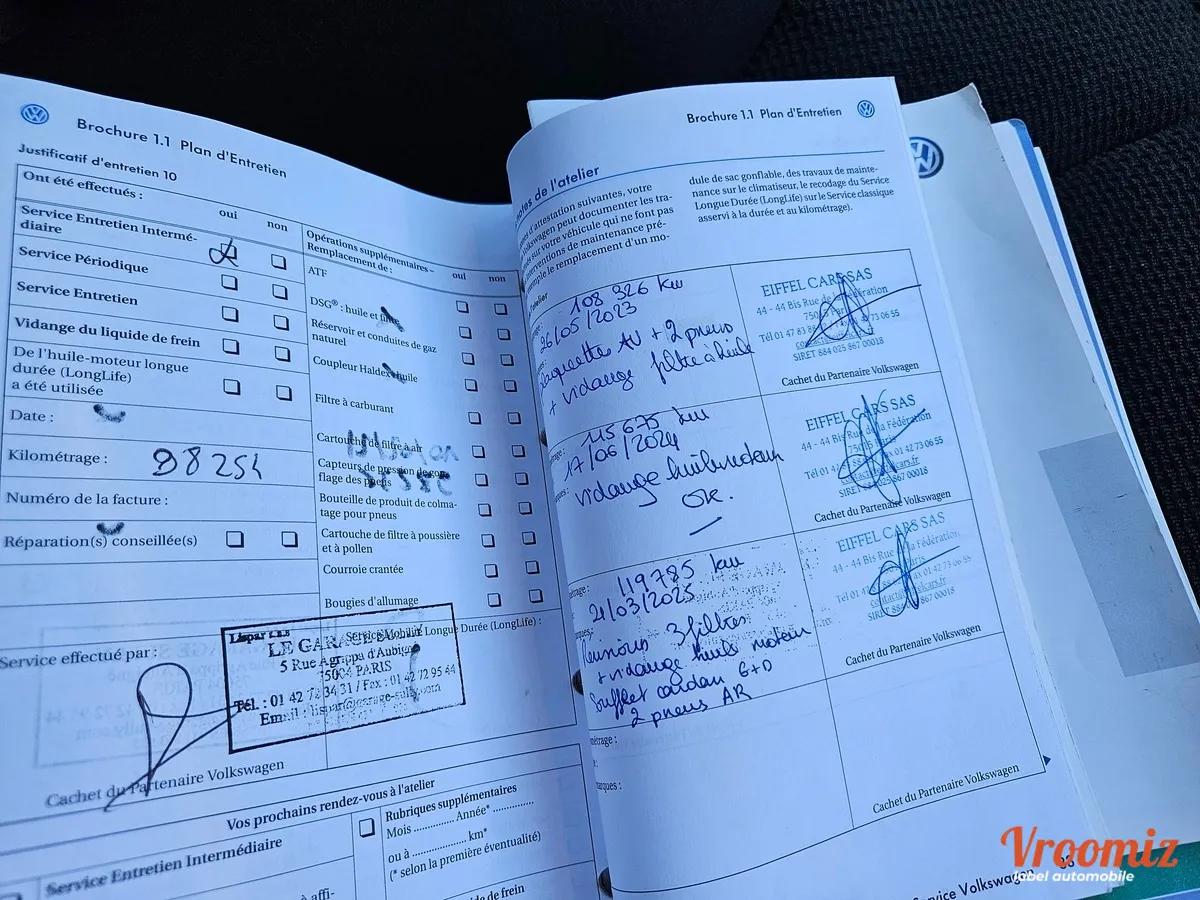 Brochure 1.1 Plan d'Entretien
Justificatif d'entretien 10
Ont été effectués :
oui
non
Service Entretien Intermé-
diaire
Service Périodique
Service Entretien
Vidange du liquide de frein
De l'huile-moteur longue
durée (LongLife)
a été utilisée
Date :
Kilométrage : 98254
Numéro de la facture :
Réparation(s) conseillée(s)
Opérations supplémentaires –
Remplacement de :
oui
non
ATF
DSG® : huile et
Réservoir et conduites de gaz
naturel
Coupleur Haldex huile
Filtre à carburant
Cartouche de filtre à air
Capteurs de pression de gon-
flage des pneus
Bouteille de produit de colma-
tage pour pneus
Cartouche de filtre à poussière
et à pollen
Courroie crantée
Bougies d'allumage
Service Mobilité Longue Durée (LongLife) :
Service effectué par :
LE GARAGE
5 Rue Agrippa d'Aubigné
75004 PARIS
Fax : 01 42 72 95 44
Cachet du Partenaire Volkswagen
Vos prochains rendez-vous à l'atelier
Service Entretien Intermédiaire
Rubriques supplémentaires
Mois .............. Année* ..............
ou à .............. km*
(* selon la première éventualité)
de frein
Brochure 1.1 Plan d'Entretien
de l'atelier
d'attestation suivantes, votre
Volkswagen peut documenter les tra-
sur votre véhicule qui ne font pas
interventions de maintenance pré-
exemple le remplacement d'un mo-
dule de sac gonflable, des travaux de mainte-
nance sur le climatiseur, le recodage du Service
Longue Durée (LongLife) sur le Service classique
asservi à la durée et au kilométrage).
108 326 km
26/05/2023
plaquettes AV + 2 pneus
+ vidange filtre à huile
EIFFEL CARS SAS
44 - 44 Bis Rue de la Fédération
SIRET 884 025 867 00018
Cachet du Partenaire Volkswagen
115 675 km
17/06/2024
vidange huile moteur
OK.
EIFFEL CARS SAS
44 - 44 Bis Rue de la Fédération
01 42 73 06 55
SIRET 884 025 867 00018
Cachet du Partenaire Volkswagen
119785 km
21/03/2025
Révision 3 filtres
+ vidange huile moteur
Soufflet cardan G+D
2 pneus AR
EIFFEL CARS SAS
44 - 44 Bis Rue de la Fédération
Paris
Fax 01 42 73 06 55
867 00018
Cachet du Partenaire Volkswagen
Cachet du Partenaire Volkswagen
Service Volkswagen
Vroomiz
label automobile